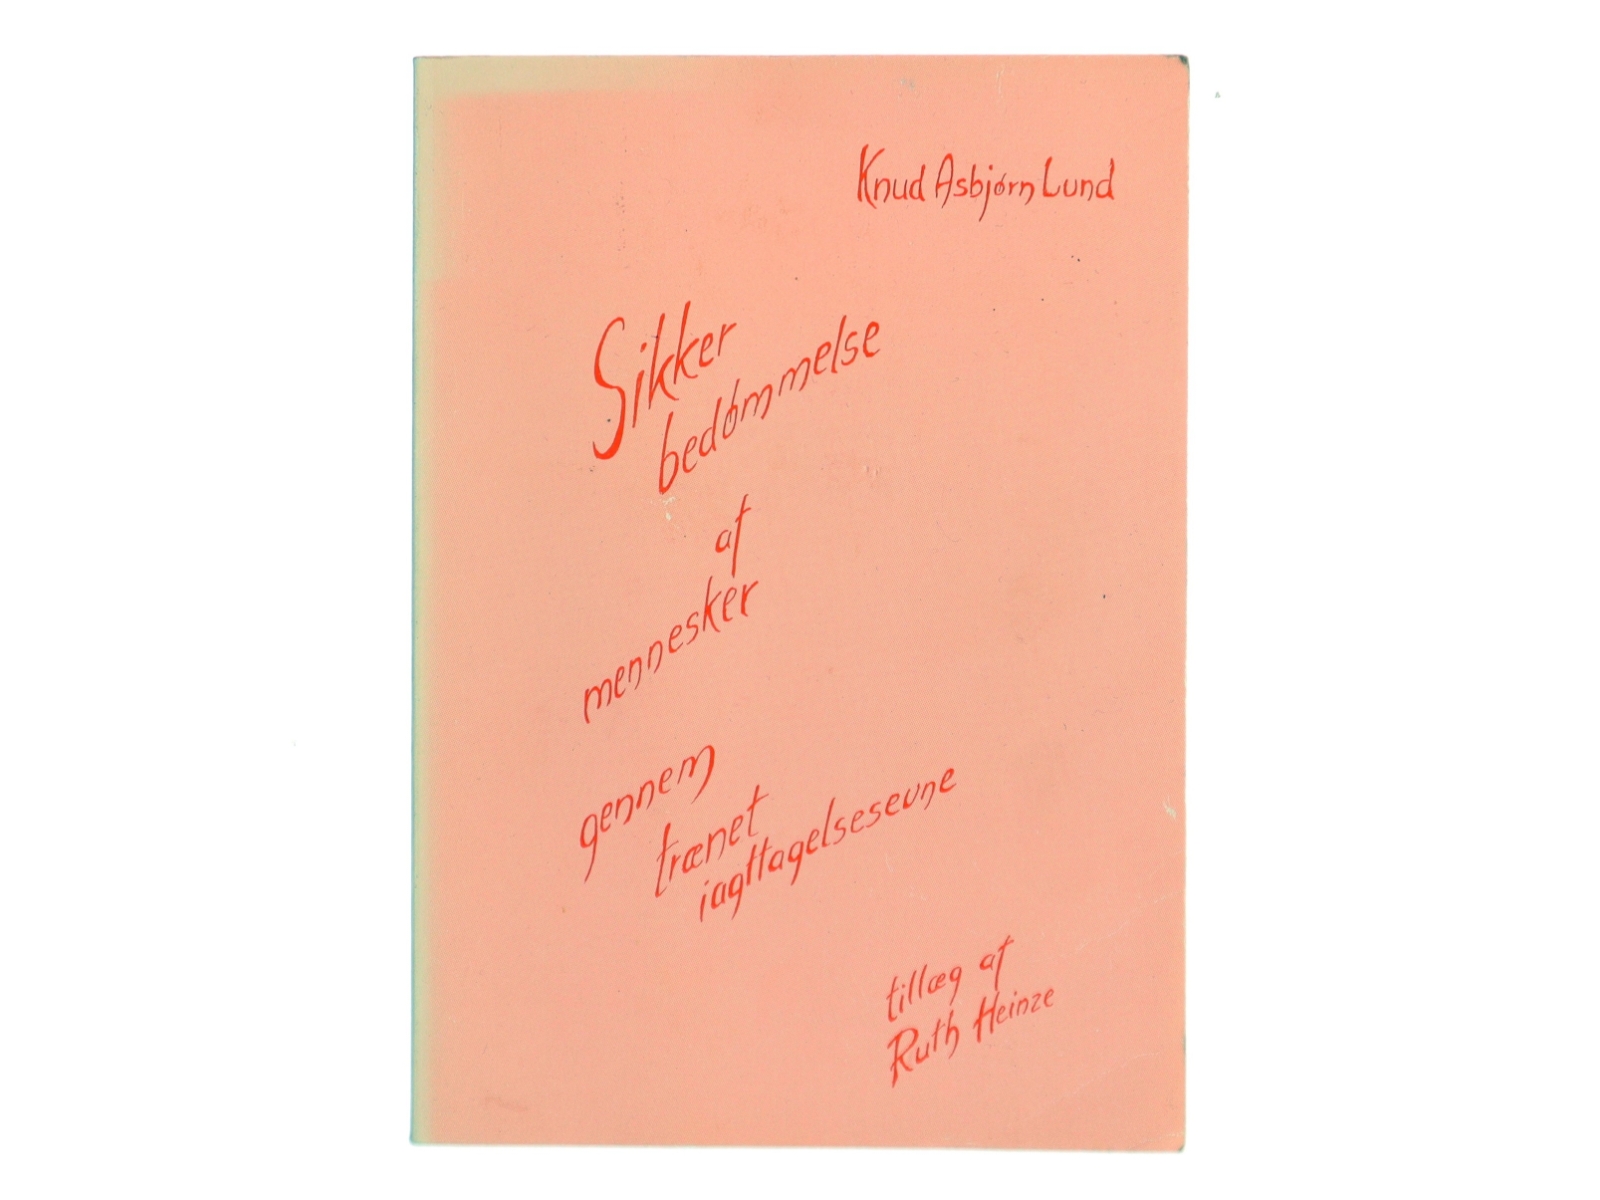 Knud Asbjørn Lund
Sikker
bedømmelse
af
mennesker
gennem
trænet
iagttagelsesevne
tillæg af
Ruth Heinze